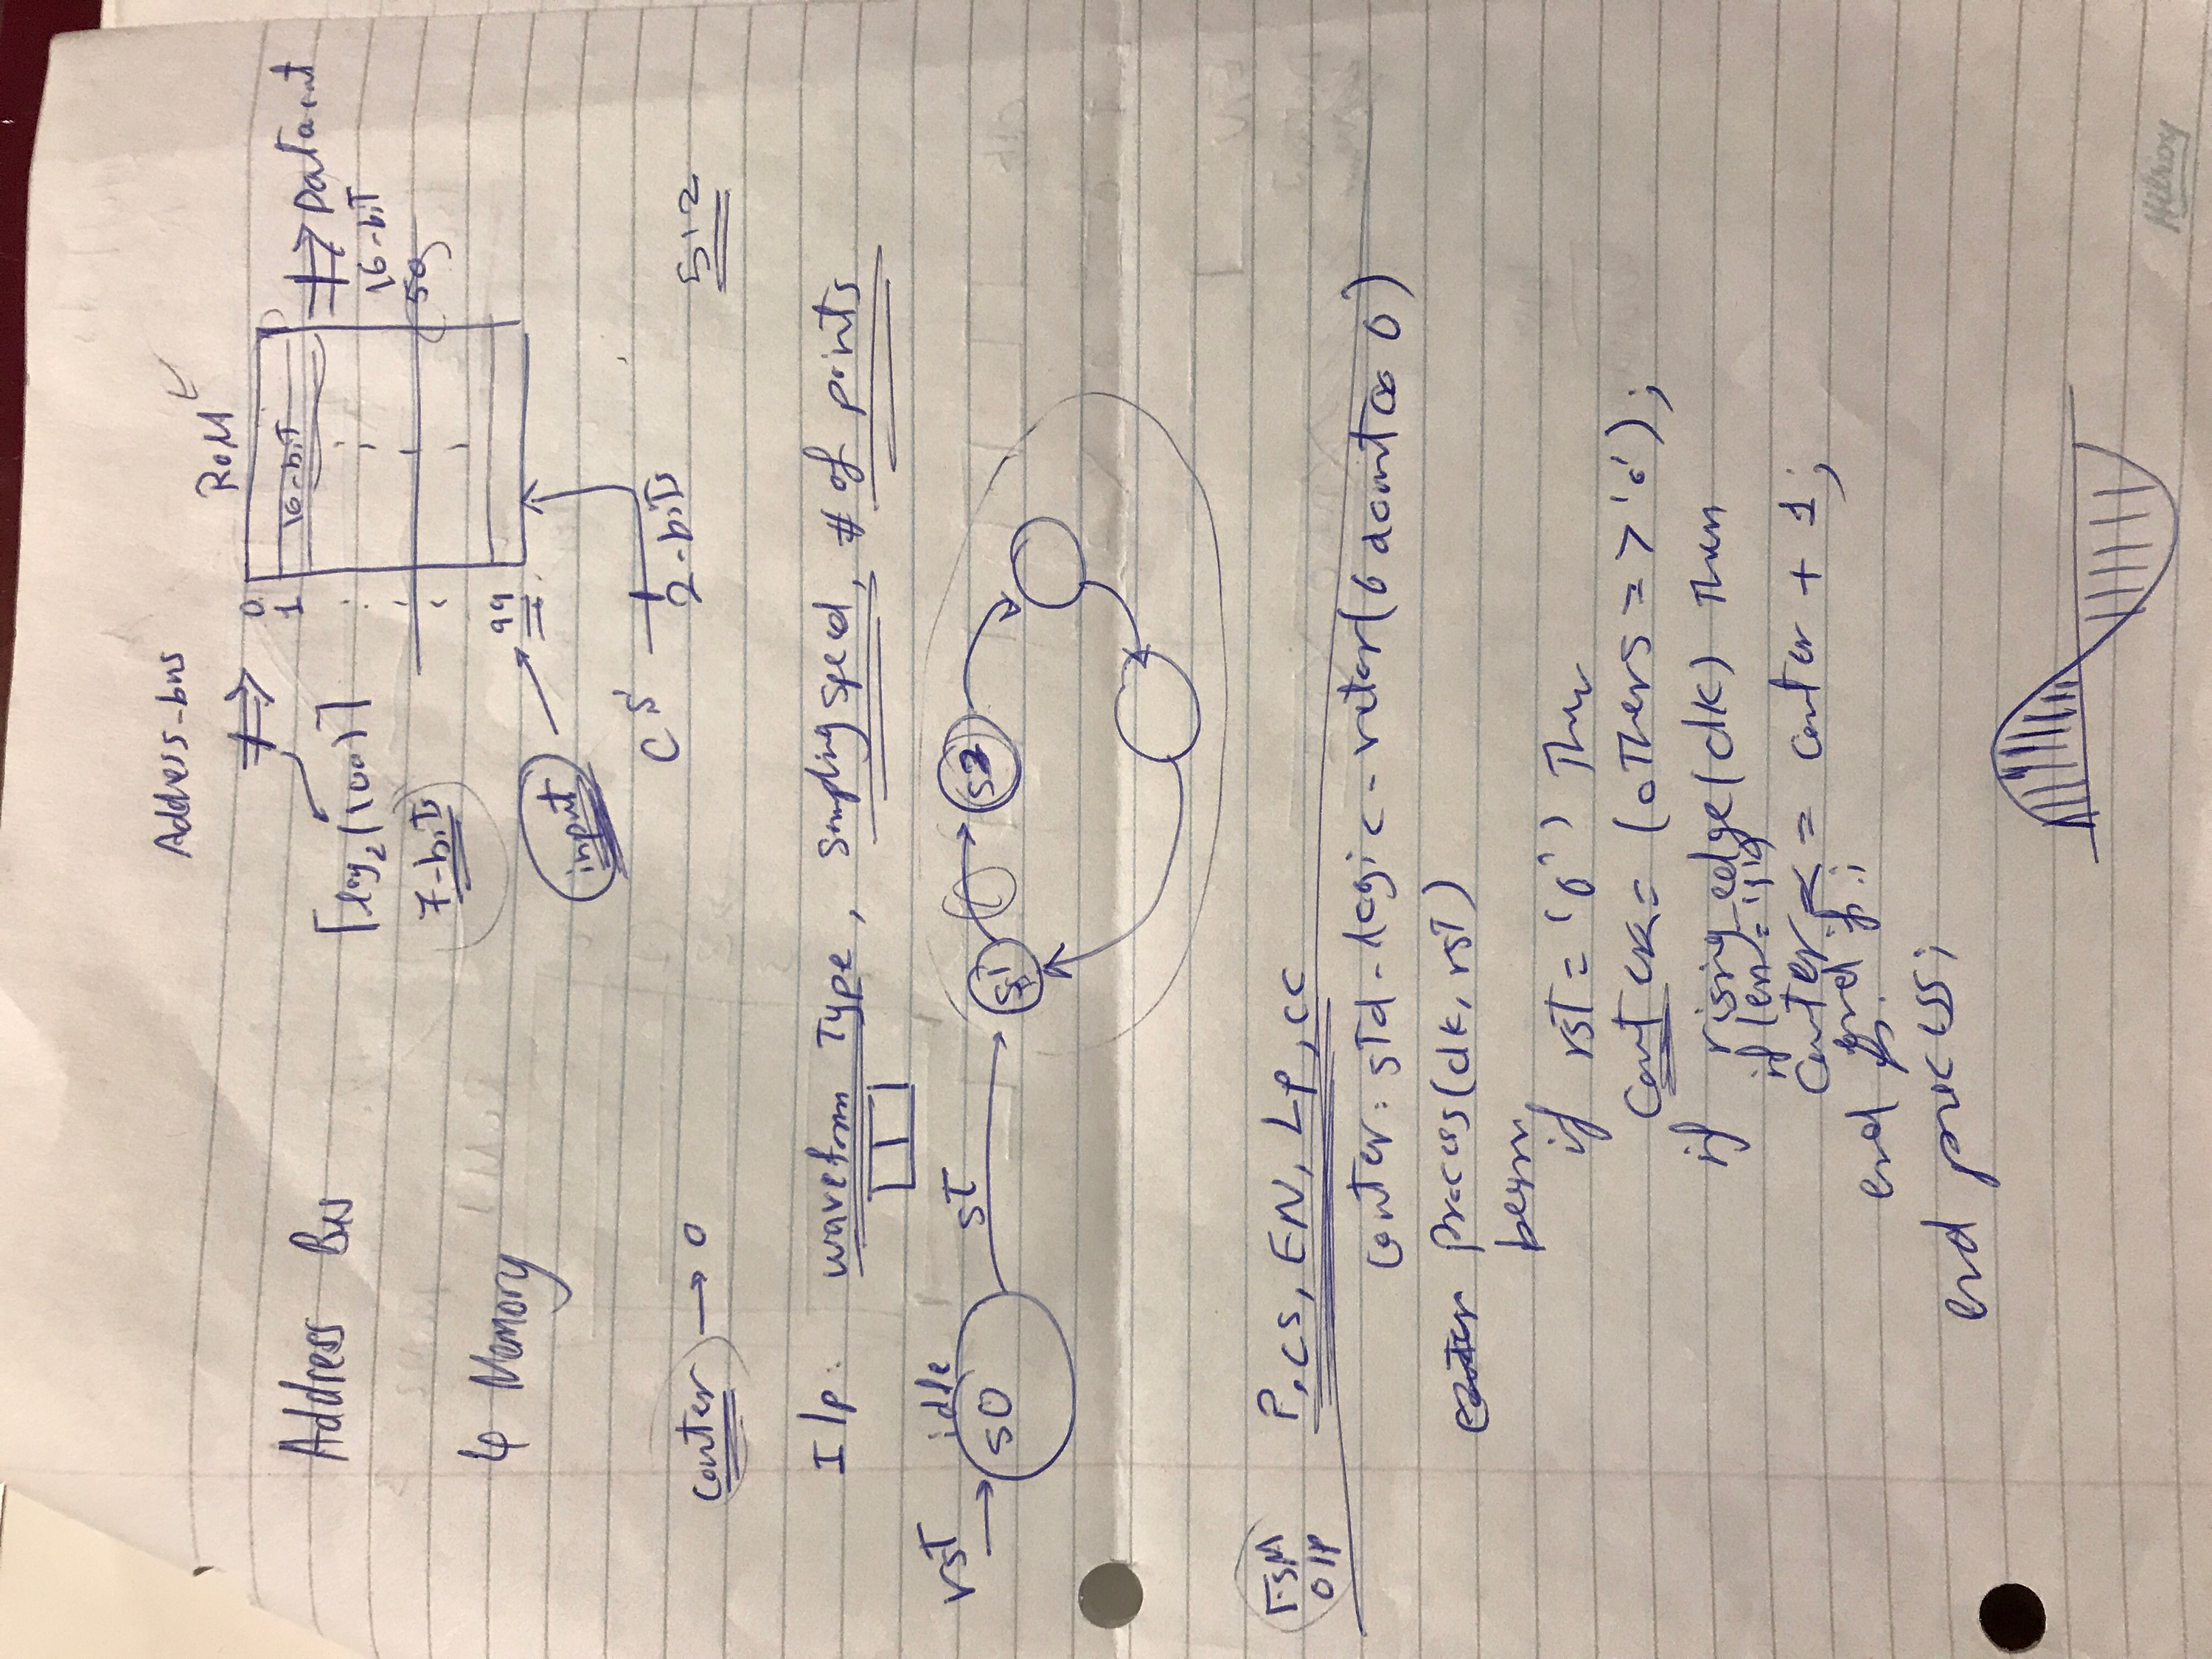 Address-bus
ROM
0
1
16-bit
Data out
16-bit
Address Bus
⌈log₂(100)⌉
7-bits
50
4 Memory
99
input
CS
2-bits
512
counter → 0
I/p: waveform Type, sampling speed, # of points
rst
idle
S0
st
S1
S2
FSM
O/P
P, CS, EN, Lp, cc
counter: std-logic-vector(6 downto 0)
process(clk, rst)
begin
if rst = '0') Then
counter <= (others => '0');
if rising_edge(clk) Then
if (en = '1')
counter <= counter + 1;
end if;
end if.
end process;
Hilroy